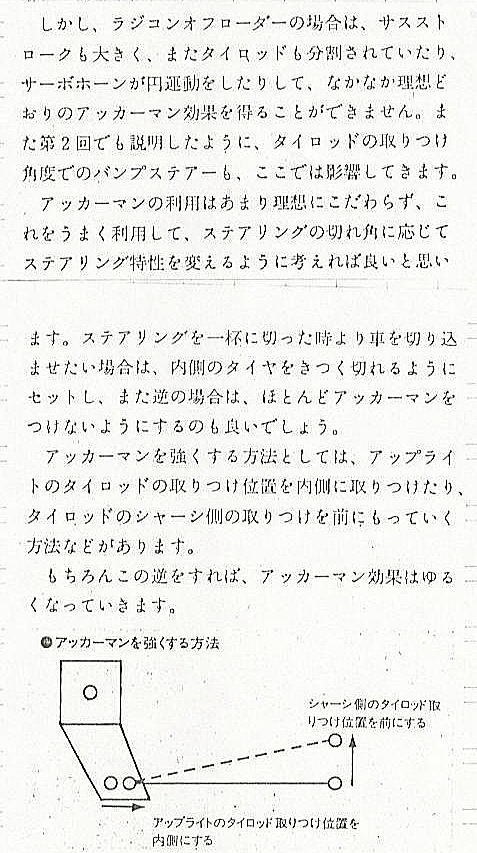 しかし、ラジコンオフローダーの場合は、サススト
ロークも大きく、またタイロッドも分割されていたり、
サーボホーンが円運動をしたりして、なかなか理想ど
おりのアッカーマン効果を得ることができません。ま
た第2回でも説明したように、タイロッドの取りつけ
角度でのバンプステアーも、ここでは影響してきます。
アッカーマンの利用はあまり理想にこだわらず、こ
れをうまく利用して、ステアリングの切れ角に応じて
ステアリング特性を変えるように考えれば良いと思い
ます。ステアリングを一杯に切った時より車を切り込
ませたい場合は、内側のタイヤをきつく切れるように
セットし、また逆の場合は、ほとんどアッカーマンを
つけないようにするのも良いでしょう。
アッカーマンを強くする方法としては、アップライ
トのタイロッドの取りつけ位置を内側に取りつけたり、
タイロッドのシャーシ側の取りつけを前にもっていく
方法などがあります。
もちろんこの逆をすれば、アッカーマン効果はゆる
くなっていきます。
アッカーマンを強くする方法
シャーシ側のタイロッド取
りつけ位置を前にする
アップライトのタイロッド取りつけ位置を
内側にする